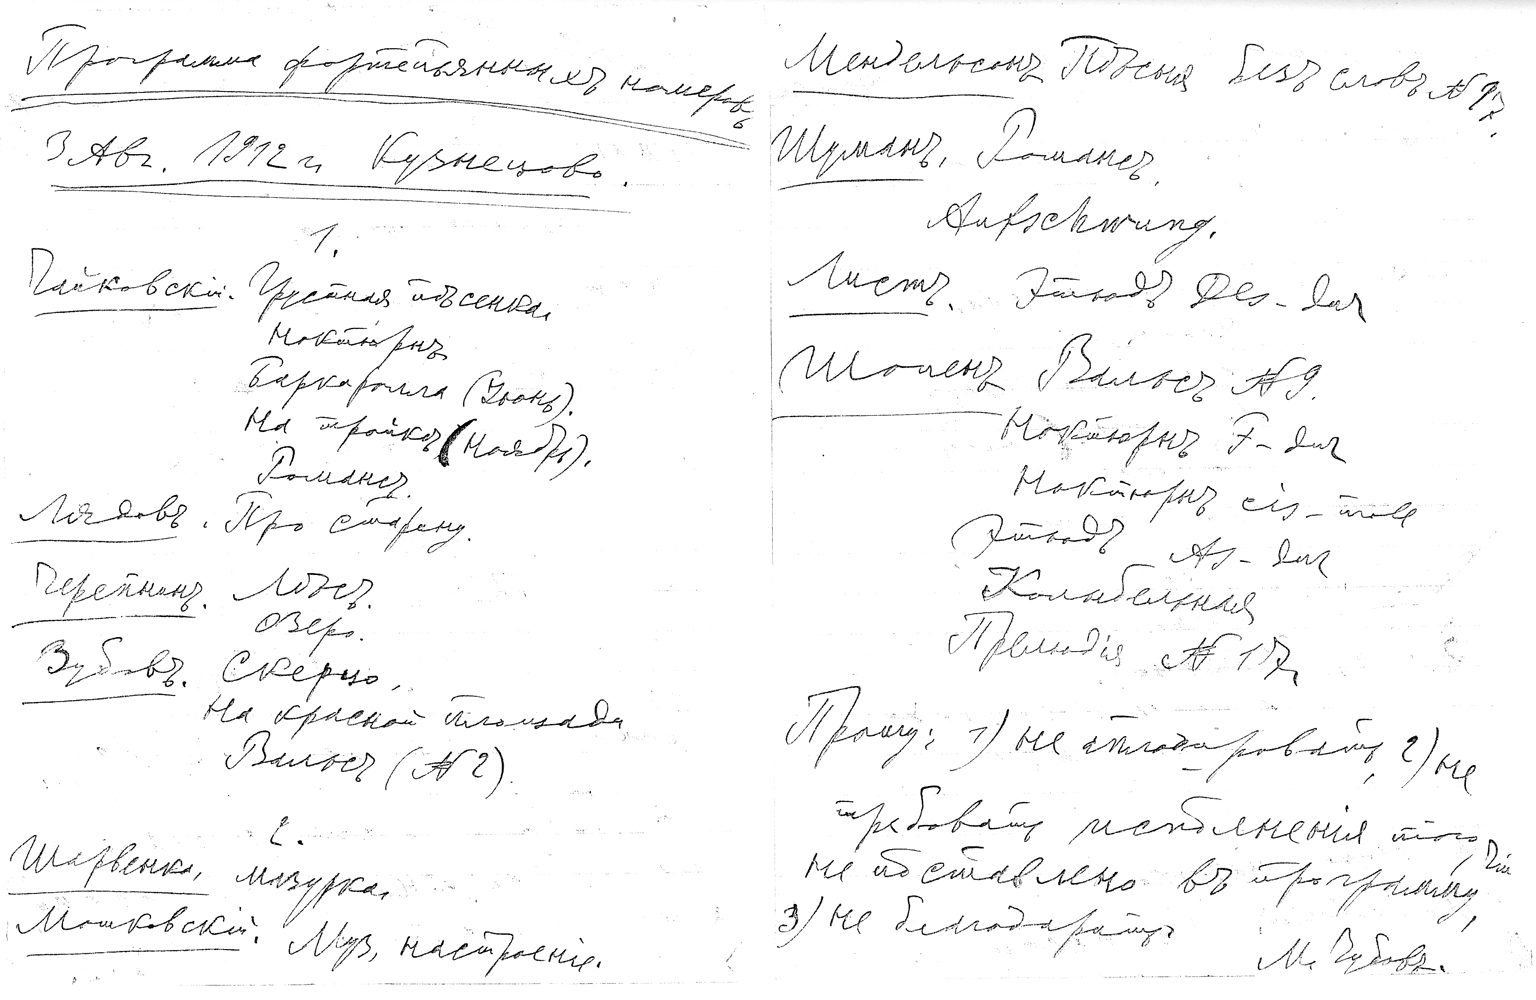 Программа фортепьянныхъ номеровъ
3 Авг. 1912 г. Кузнецово.
1.
Чайковскій. Грустная пѣсенка.
Ноктюрнъ
Баркаролла (Iюнь).
На тройкѣ (Ноябрь).
Романсъ.
Лядовъ. Про старину.
Черепнинъ. Лѣсъ.
Озеро.
Зубовъ. Скерцо,
На красной площади
Вальсъ (№ 2).
2.
Шарвенка, мазурка.
Мошковскій. Муз. настроеніе.
Мендельсонъ Пѣсня безъ словъ №
Шуманъ. Романсъ.
Aufschwung.
Листъ. Этюдъ Des-dur
Шопенъ Вальсъ № 9.
Ноктюрнъ F-dur
Ноктюрнъ cis-moll
Этюдъ As-dur
Колыбельная
Прелюдія № 17.
Прошу: 1) не апплодировать, 2) не
требовать исполненія того, что
не поставлено въ программу,
3) не благодарить
М. Зубовъ.